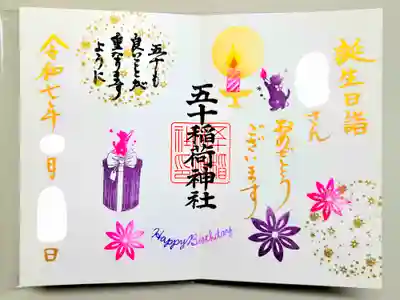 誕生日詣
さん
おめでとう
ございます
五十稲荷神社
Happy Birthday
五十も
良いことが
重なります
ように
令和七年 月 日